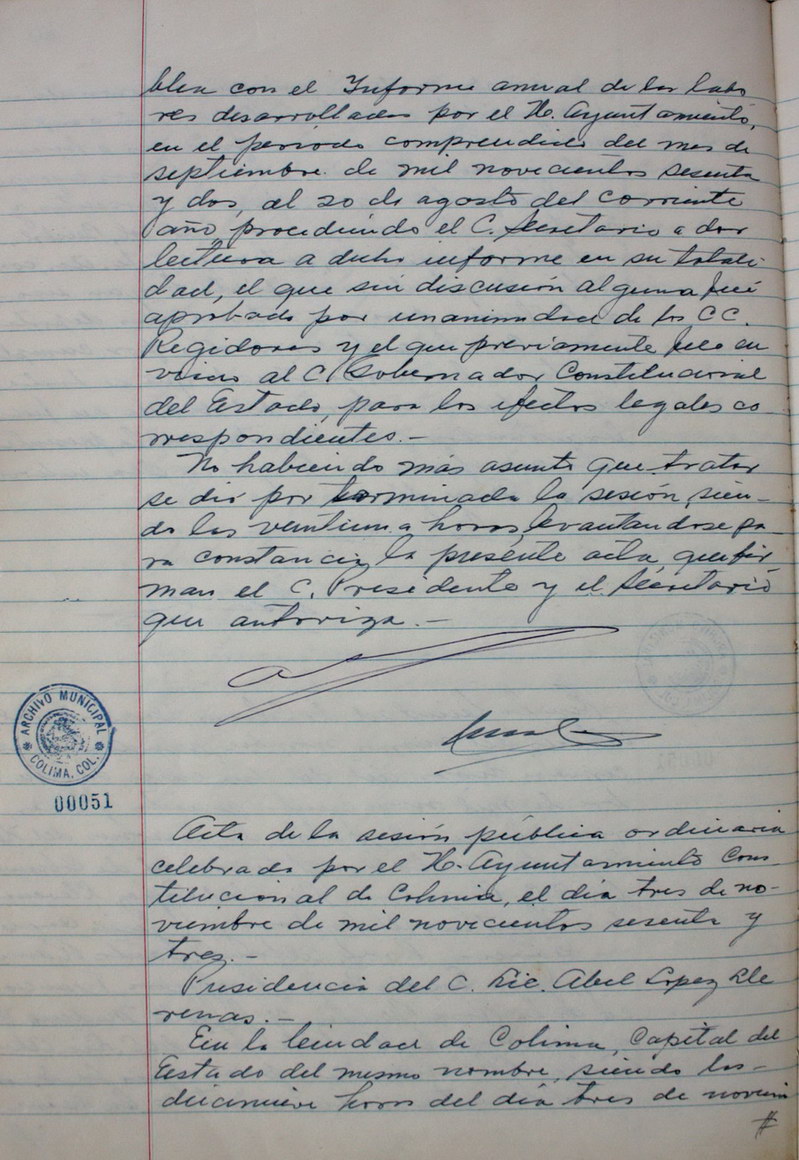 blea con el Informe anual de las labo
res desarrolladas por el H. Ayuntamiento,
en el periodo comprendido del mes de
septiembre de mil novecientos sesenta
y dos, al 20 de agosto del corriente
año procediendo el C. Secretario a dar
lectura a dicho informe en su totali-
dad, el que sin discusión alguna fué
aprobado por unanimidad de los CC.
Regidores y el que previamente fue en
viado al C. Gobernador Constitucional
del Estado, para los efectos legales co-
rrespondientes.-
No habiendo más asunto que tratar
se dió por terminada la sesión, sien-
do las veintiuna horas, levantandose pa-
ra constancia la presente acta que fir-
man el C. Presidente y el Secretario
que autoriza.-
ARCHIVO MUNICIPAL
COLIMA, COL.
00051
Acta de la sesión pública ordinaria
celebrada por el H. Ayuntamiento Cons-
titucional de Colima, el día tres de no-
viembre de mil novecientos sesenta y
tres.-
Presidencia del C. Lic. Abel Lopez Lle
renas.-
En la Ciudad de Colima, Capital del
Estado del mismo nombre, siendo las-
diecinueve horas del día tres de noviem
#